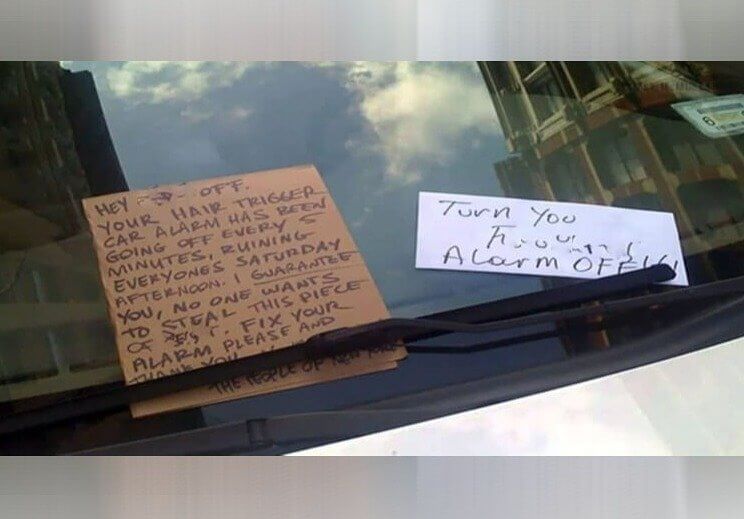 HEY OFF.
YOUR HAIR TRIGGER
CAR ALARM HAS BEEN
GOING OFF EVERY 5
MINUTES, RUINING
EVERYONES SATURDAY
AFTERNOON. I GUARANTEE
YOU, NO ONE WANTS
TO STEAL THIS PIECE
OF FIX YOUR
ALARM PLEASE AND
THANK YOU
THE PEOPLE OF NEW
Turn You
Alarm OFF!!!